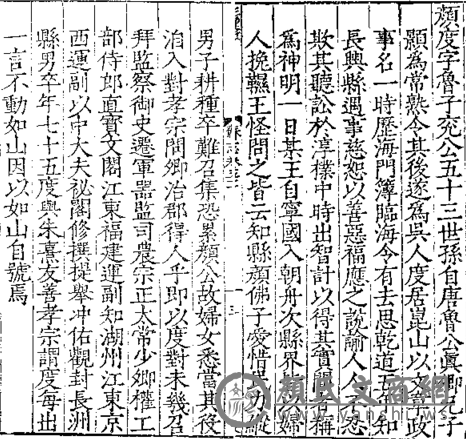 顏度字魯子兖公五十三世孫自唐魯公眞卿七子
顯為常熟令其後遂為吳人度居崑山以文章政
事名一時歷海門簿臨海令有去思乾道五知
長興縣遇事慈恕以善惡福應之說諭人人不忍
欺其聽訟於淳樸中時出智計以得其實稱
為神明一日某王自寧國入朝舟次縣界婦
人挽繂王怪問之皆云知縣顏佛子愛惜民力縱
男子耕種卒難召集恐累顏公故婦女悉當其役
洎入對孝宗問鄉治郡得人乎即以度對未幾召
拜監察御史遷軍器監司農宗正太常少卿權工
部侍郎直寶文閣江東福建運副知湖州江東京
西運副以中大夫祕閣修撰提舉冲佑觀封長洲
縣男卒年七十五度與朱熹友善孝宗謂度每出
一言不動如山因以如山自號焉